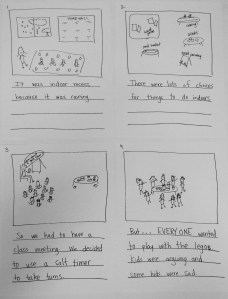 1.
It was indoor recess
because it was raining.
2.
There were lots of choices
for things to do indoors.
3.
So we had to have a
class meeting. We decided
to use a
timer
to take turns.
4.
But... EVERYONE wanted
to play with the legos.
Kids were arguing and
some kids were sad.